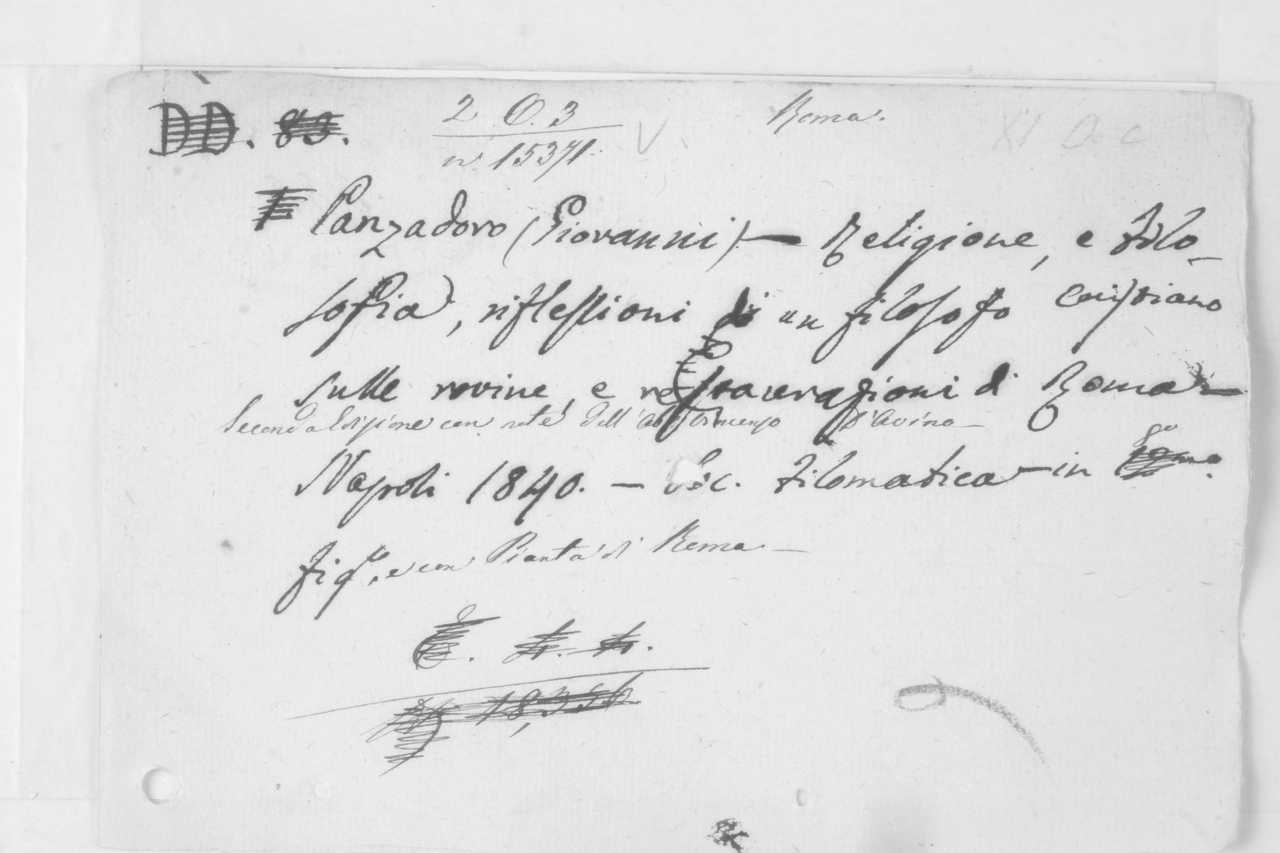 DD. 83. 2 O. 3 V. Roma. XI A c
n. 15371.
Panzadoro (Giovanni) — Religione, e Filo-
sofia, riflessioni di un filosofo Cristiano
sulle rovine, e restaurazioni di Roma —
Seconda Edizione con note dell'Ab. Vincenzo d'Avino —
Napoli 1840. — Tip. Filomatica — in 8º
fig.º, e con Pianta di Roma —